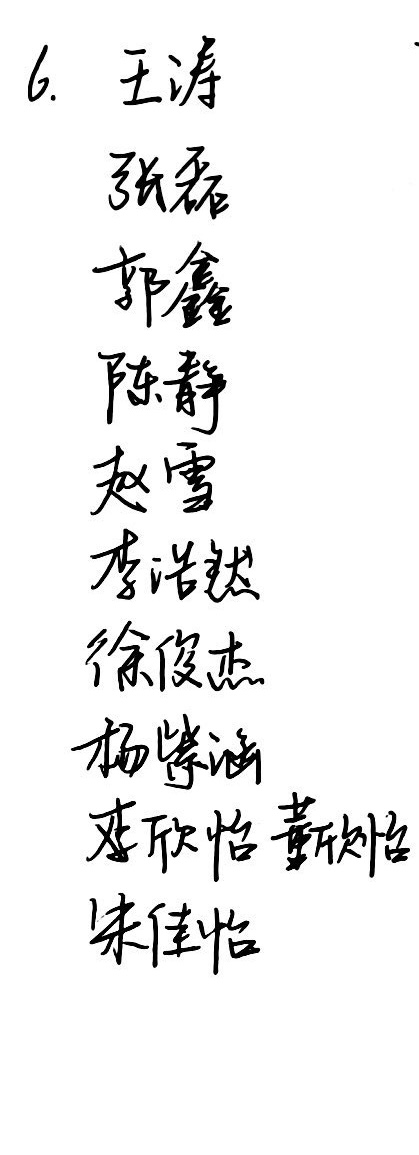 6. 王涛
张磊
郭鑫
陈静
赵雪
李浩然
徐俊杰
杨紫涵
李欣怡 黄欣怡
朱佳怡